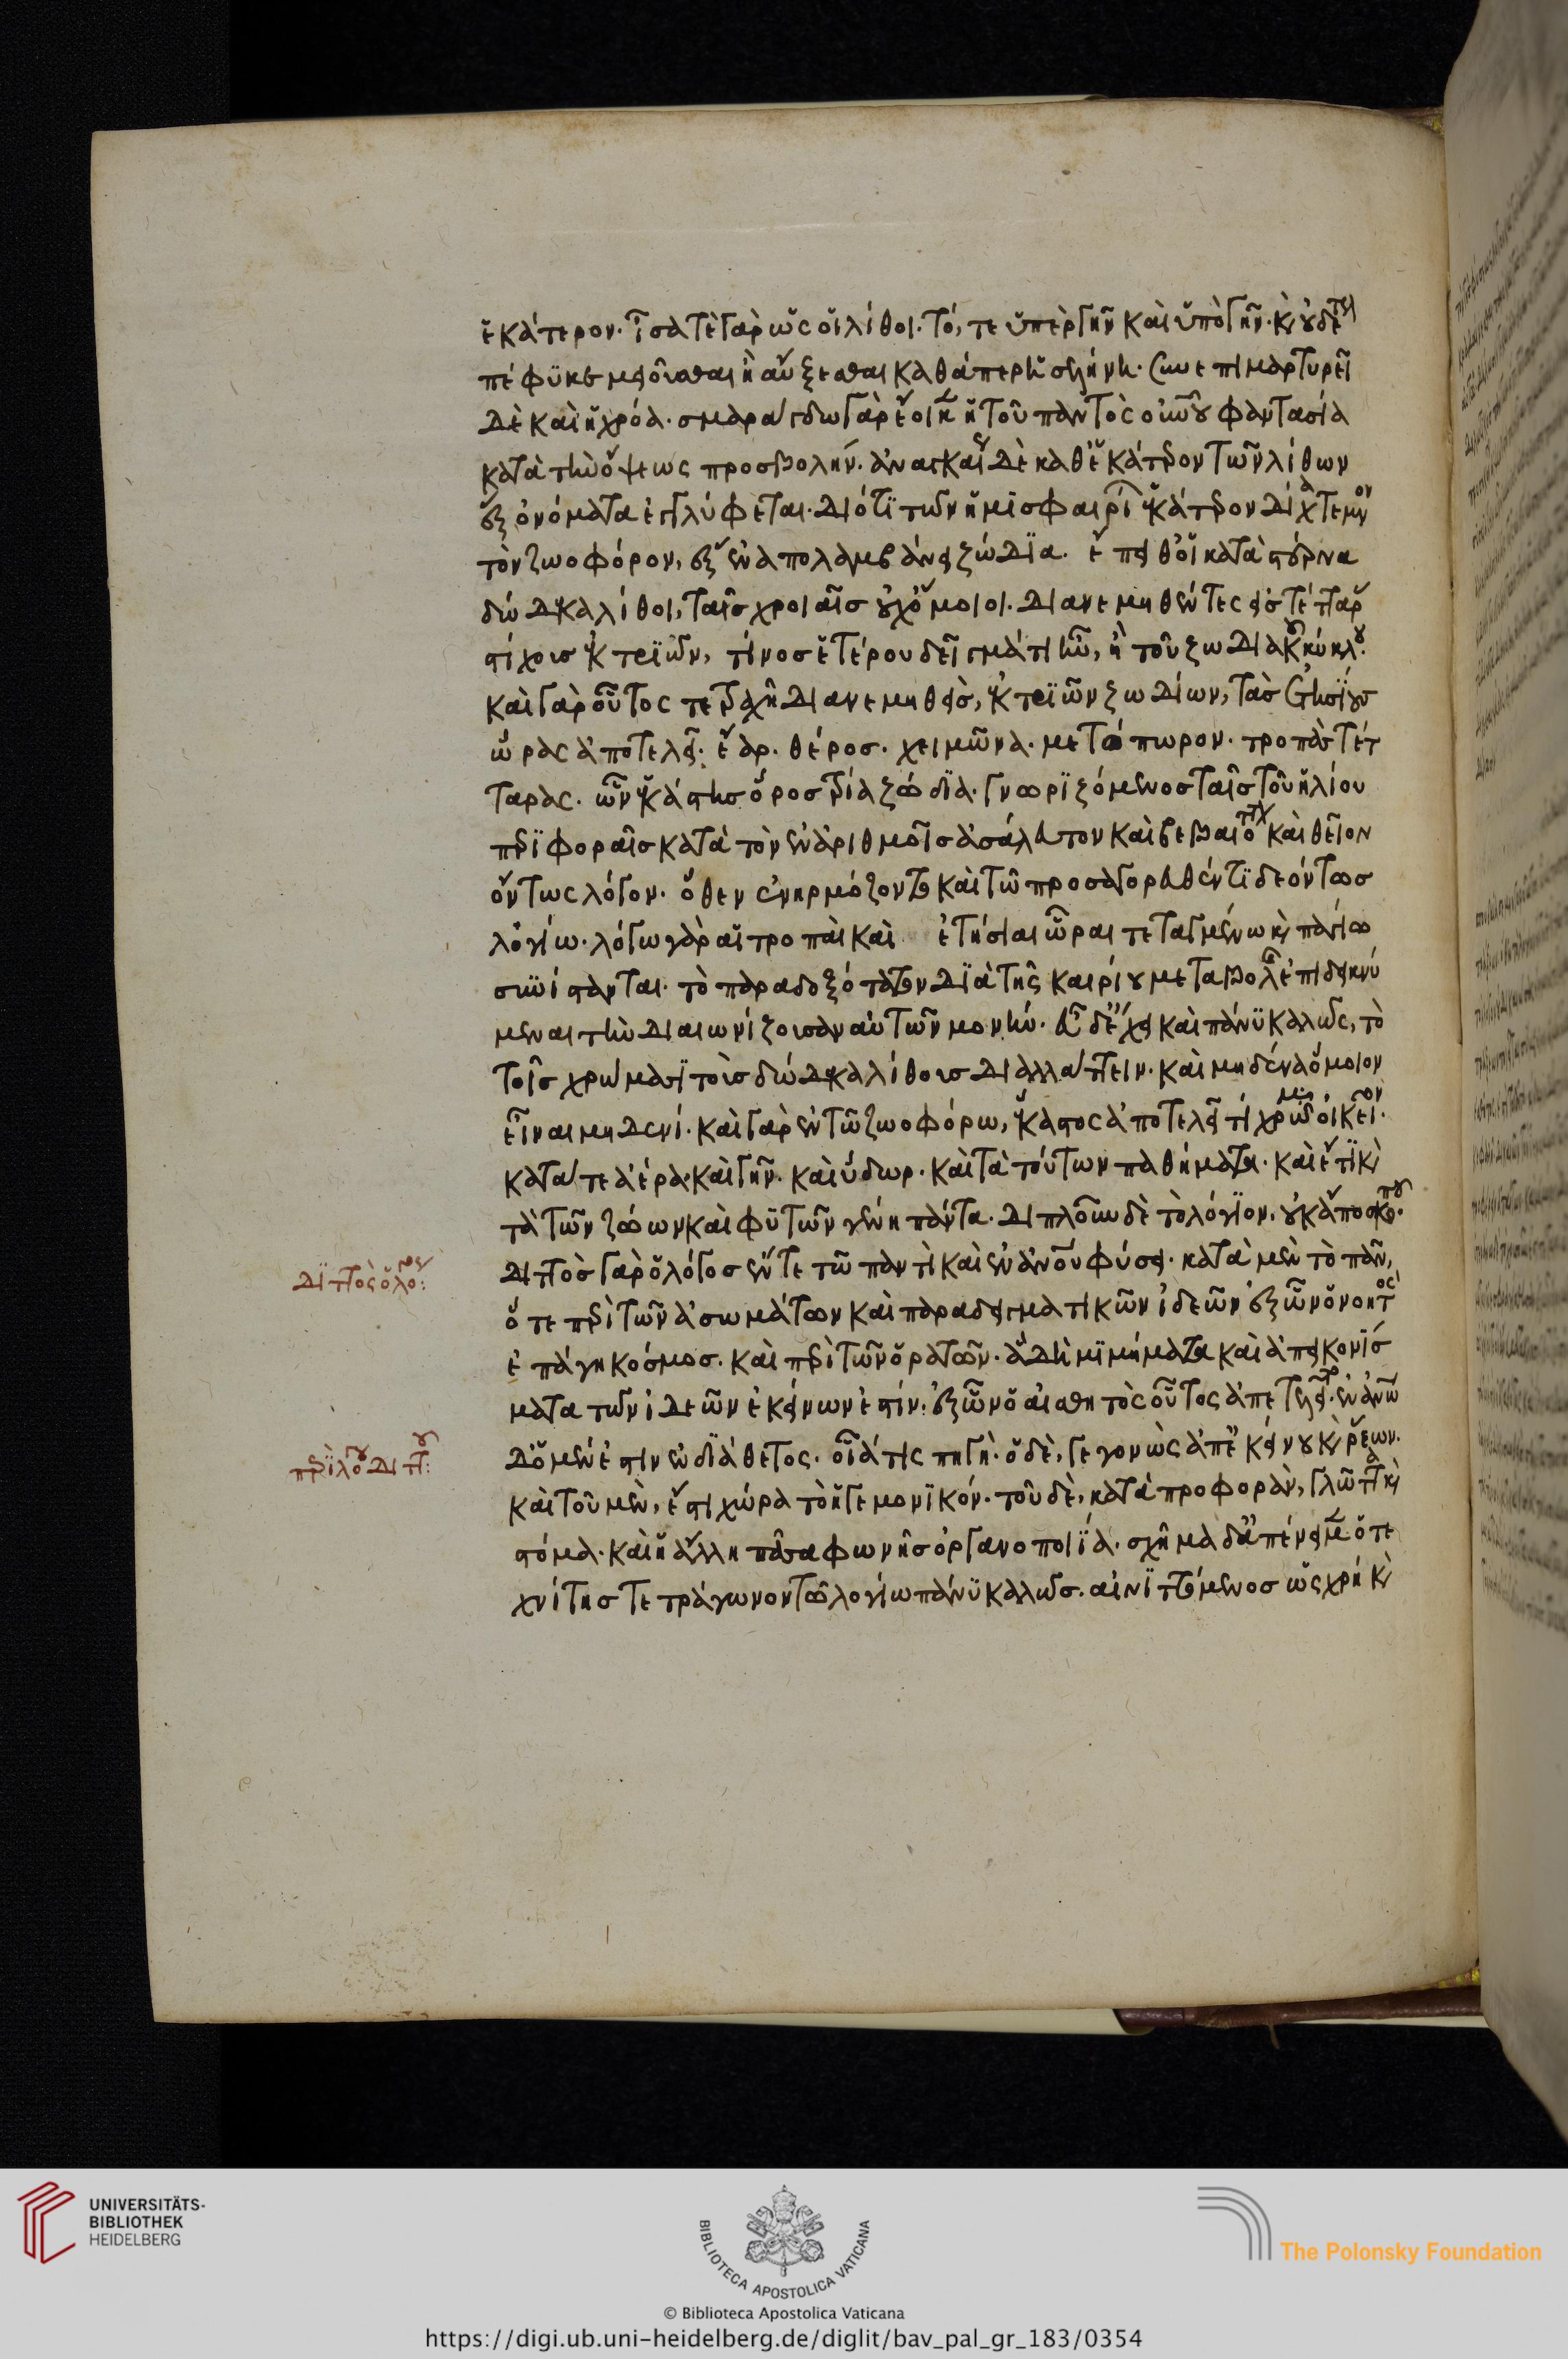 ἑκάτερον. ἴσα τὲ γὰρ ὡς οἱ λίθοι. τό, τε ὑπὲρ γῆν καὶ ὑπὸ γῆν. κ(αὶ) οὐδέτε
πέφυκε μειοῦσθαι ἢ αὔξεσθαι καθάπερ ἡ σελήνη. συνεπιμαρτυρεῖ
δὲ καὶ ἡ χρόα. σμαράγδω γὰρ ἔοικ ἡ τοῦ παντὸς οὐνοῦ φαντασία
κατὰ τὴν ὄψεως προσβολήν. ἀναγκαί δὲ καθ' ἑκάτερον τῶν λίθων
ἓξ ὀνόματα ἐγλύφεται. διότι τῶν ἡμισφαιρί ἑκάτερον δίχα τέμνον
τὸν ζωοφόρον, ἓξ ἐναπολαμβάνει ζώδια. ἔπειθ' οἱ κατὰ στέρνα
δώδεκα λίθοι, ταῖς χροιαῖς οὐχ ὅμοιοι. διανεμηθέντες εἰς τέτταρ
στίχοις ἐκ τριῶν, τίνος ἑτέρου δείγμά τι ἦν, ἢ τοῦ ζωδιακοῦ κύκλου.
καὶ γὰρ οὗτος τετραχῆ διανεμηθεὶς, ἐκ τριῶν ζωδίων, τὰς ἐτησίους
ὥρας ἀποτελεῖ. ἔαρ. θέρος. χειμῶνα. μετόπωρον. τροπὰς τέτ
ταρας. ὧν ἑκάστης ὅρος τρία ζώδια. γνωριζόμενος ταῖς τοῦ ἡλίου
περιφοραῖς κατὰ τὸν ἐν ἀριθμοῖς ἀσάλευτον καὶ βεβαιότατ καὶ θεῖον
ὄντως λόγον. ὅθεν ἐνηρμόζοντο καὶ τῶ προσαγορευθέντι δεόντως
λογίω. λόγω γὰρ αἱ τροπαὶ καὶ ἐτήσιαι ὧραι τεταγμένω κ(αὶ) παγίω
συνίστανται. τὸ παραδοξότατον διὰ τῆς καιρίου μεταβολῆ ἐπιδεικνύ
μεναι τὴν διαιωνίζουσαν αὐτῶν μονήν. εὖ δ' ἔχει καὶ πάνυ καλῶς, τὸ
τοῖς χρώμασι τοὺς δώδεκα λίθους διαλλάττειν. καὶ μηδένα ὅμοιον
εἶναι μηδενί. καὶ γὰρ ἐν τῶ ζωοφόρω, ἕκαστος ἀποτελεῖ τί χρῶμ οἰκεῖον.
κατά τε ἀέρα. καὶ γῆν. καὶ ὕδωρ. καὶ τὰ τούτων παθήματα. καὶ ἔτι κ(αὶ)
τὰ τῶν ζώων καὶ φυτῶν γένη πάντα. διπλοῦν δὲ τὸ λόγιον, οὐκ ἀπὸ σκοποῦ.
διττὸς γὰρ ὁ λόγος ἔν τε τῶ παντὶ καὶ ἐν ἀνου φύσει. κατὰ μὲν τὸ πᾶν,
ὅ τε περὶ τῶν ἀσωμάτων καὶ παραδειγματικῶν ἰδεῶν ἐξ ὧν ὁ νοητὸς
ἐπάγη κόσμος. καὶ περὶ τῶν ὁρατῶν. ἃ δὴ μιμήματα καὶ ἀπεικονίσ
ματα τῶν ἰδεῶν ἐκείνων ἐστίν. ἐξ ὧν ὁ αἰσθητὸς οὗτος ἀπετελεῖτο. ἐν ἀνω
δ' ὁ μέν ἐστιν ἐνδιάθετος. οἷά τις πηγή. ὁ δὲ, γεγονὼς ἀπ' ἐκείνου κ(αὶ) ῥέων.
καὶ τοῦ μὲν, ἔστι χώρα τὸ ἡγεμονικόν. τοῦ δὲ, κατὰ προφορὰν, γλῶττα κ(αὶ)
στόμα. καὶ ἡ ἄλλη πᾶσα φωνῆς ὀργανοποιΐα. σχῆμα δ' ἀπένειμεν ὁ τε
χνίτης τετράγωνον τῶ λογίω πάνυ καλῶς. αἰνιττόμενος ὡς χρὴ κ(αὶ)
διττὸς ὁ λόγος:
περὶ λόγου διττοῦ:
UNIVERSITÄTS-
BIBLIOTHEK
HEIDELBERG
BIBLIOTECA APOSTOLICA VATICANA
The Polonsky Foundation
© Biblioteca Apostolica Vaticana
https://digi.ub.uni-heidelberg.de/diglit/bav_pal_gr_183/0354